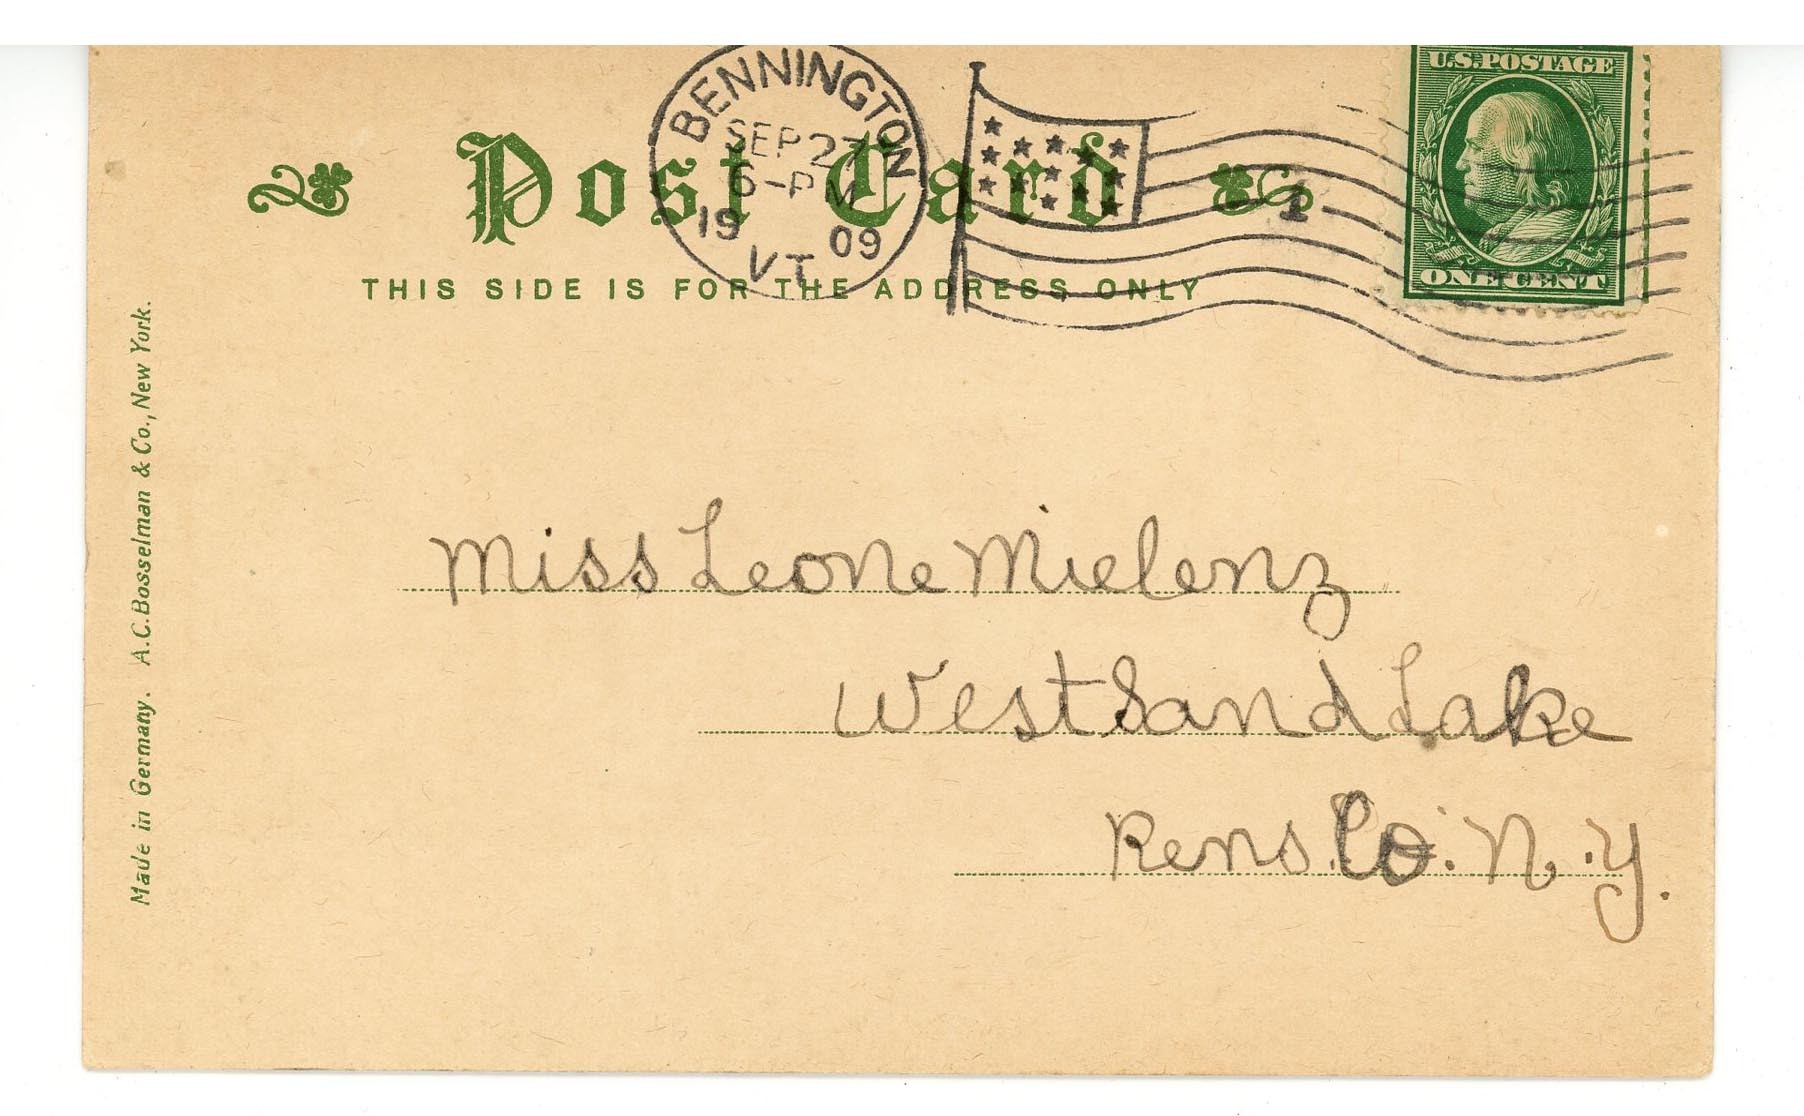 BENNINGTON
SEP 27
6-PM
19 09
VT
1
U.S. POSTAGE
ONE CENT
Post Card
THIS SIDE IS FOR THE ADDRESS ONLY
Miss Leone Mielenz
West Sand Lake
Rens. Co. N. Y.
Made in Germany. A.C. Bosselman & Co., New York.